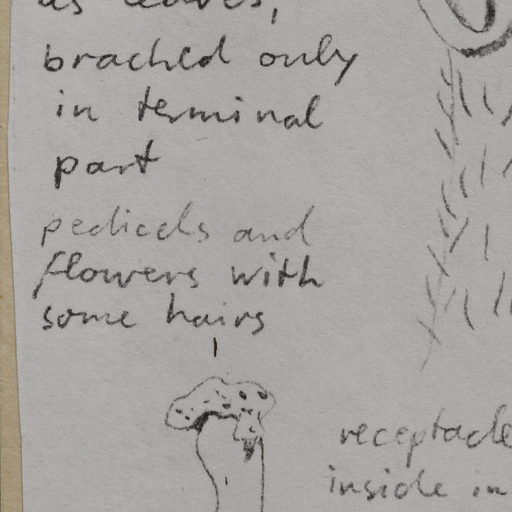 as leaves,
brached only
in terminal
part
pedicels and
flowers with
some hairs
receptacle
inside in